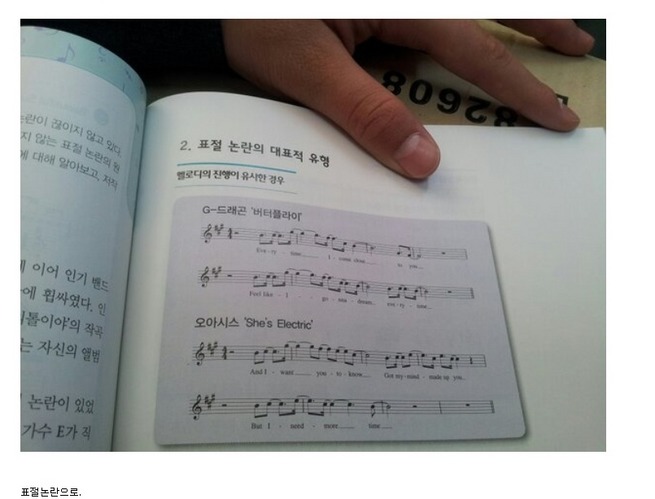 란이 끊이지 않고 있다.
지 않는 표절 논란의 원
에 대해 알아보고, 저작
에 이어 인기 밴드
에 휩싸였다. 인
톨이야'의 작곡
는 자신의 앨범
논란이 있었
가수 E가 직
82608
2. 표절 논란의 대표적 유형
멜로디의 진행이 유사한 경우
G-드래곤 '버터플라이'
Eve-ry - time I - come close to you
Feel like - I - go - nna dream eve-ry - time
오아시스 'She's Electric'
And I - want you - to - know Got my-mind - made up you
But I - need - more time
표절논란으로.